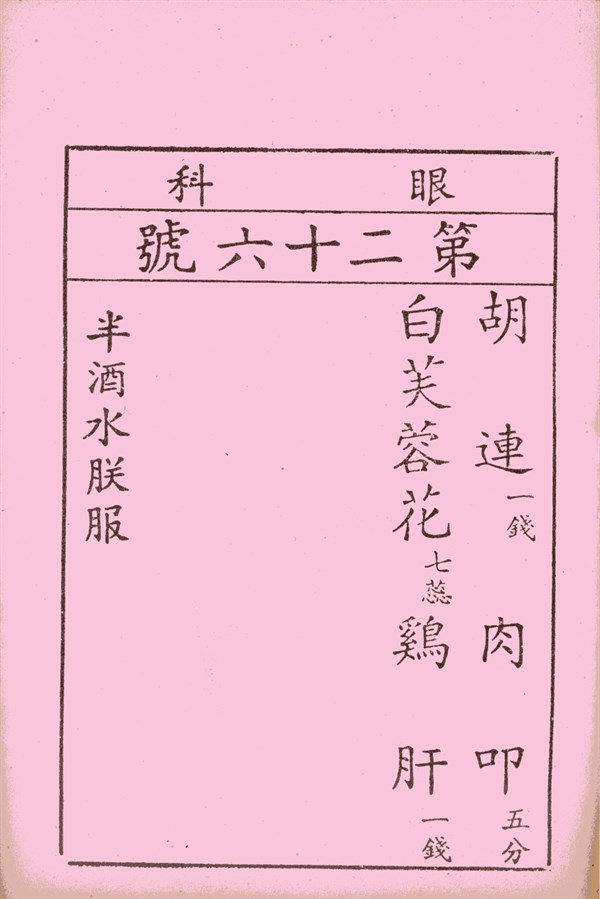 眼科
第二十六號
胡連一錢 肉叩五分
白芙蓉花七蕊 鷄肝一錢
半酒水朕服